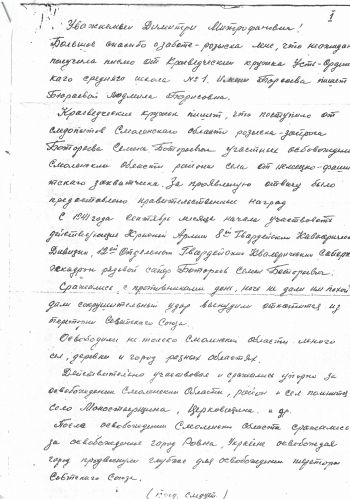 1
Уважаемый Дмитрий Митрофанович!
Большое спасибо о заботе - розыска мне, что неожиданно
получила письмо от Краеведческий кружка Усть-Ордын
ского средняго школа №1. Имени Борсоева пишет
Бураевой Людмила Борисовна.
Краеведческий кружек пишет, что поступило от
следопытов Смоленского области розыска-
Боторова Семена Боторович участник освобождения
Смоленском области района села от немецко-фашис
тского захватчика. За проявленную отвагу было
предоставлено правительственные наград
С 1941 года сентября месяце начала участвовать
действующих Красной Армии 8ой Гвардейским Кавалерийск
Дивизии, 12ой Отдельном Гвардейским Кавалерийском
эскадрон рядовой сапер Боторов Семен Боторович.
Сражались с противниками днем, ночи не дали им покой
дали сокрушительный удар вынудили откатится из
територии Советского Союза.
Освободили не только Смоленским области, много
сел, деревни и город разных областях.
Действительно участвовал и сражались упорно за
освобождение Смоленским Области, район и сел помнится
село Монастырщина, Церковщина. и др.
После освобождении Смоленским области сражались
за освобождение город Ровна, Украине освобождая
город продвинули глубже для освобождении территории
Совтского Союза.